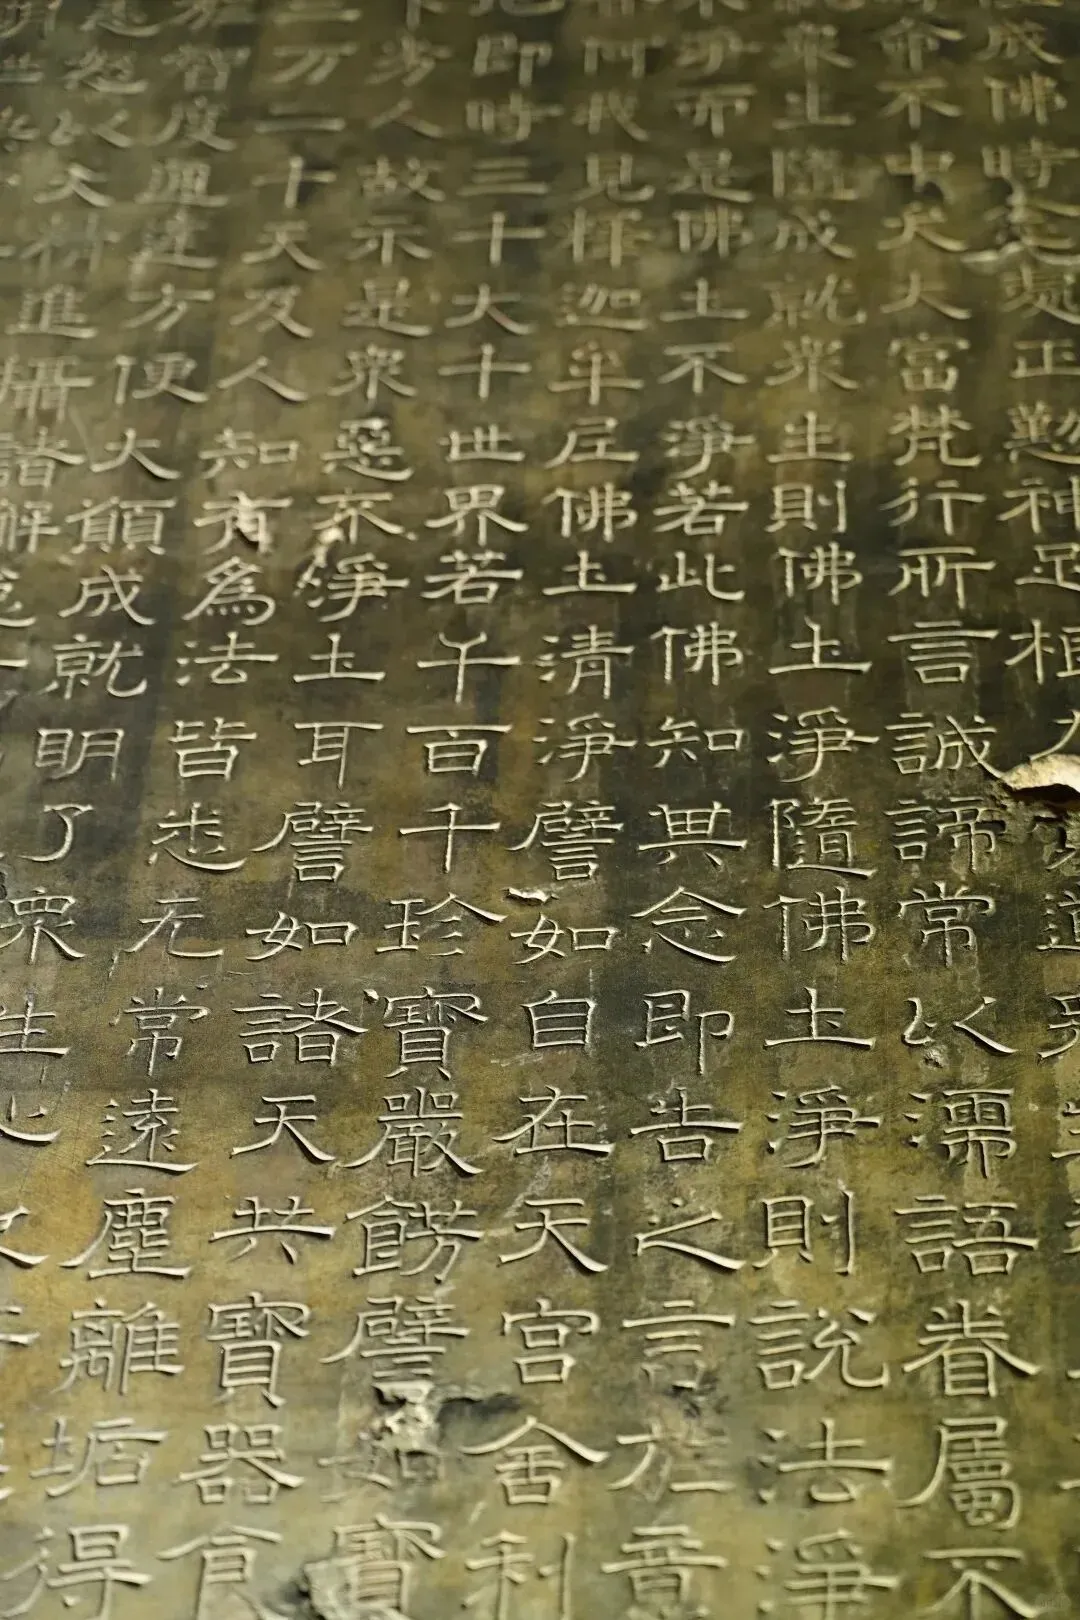 成佛時處正懃神足根力道眾生
命不中夭大富梵行所言誠諦常以濡語眷屬不
就眾生隨成就眾生則佛土淨隨佛土淨則說法淨
不淨而是佛土不淨若此佛知其念即告之言於意
耶何我見釋迦牟尼佛土清淨譬如自在天宮舍利
地即時三十大十世界若千百千珍寶嚴餝譬如寶
下劣人故示是眾惡不淨土耳譬如諸天共寶器食
三万二十天及人知有為法皆悉无常遠塵離垢得
方智度通達方便大願成就明了眾生心
以大進攝諸解